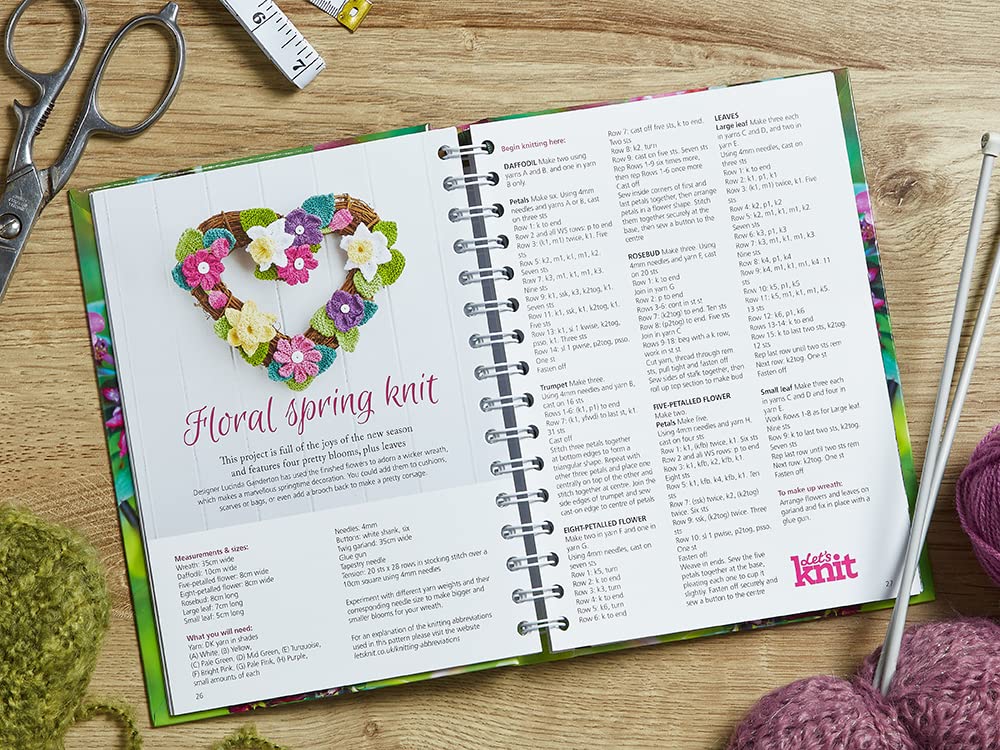 6
7
Floral spring knit
This project is full of the joys of the new season
and features four pretty blooms, plus leaves
Designer Lucinda Ganderton has used the finished flowers to adorn a wicker wreath,
which makes a marvellous springtime decoration. You could add them to cushions,
scarves or bags, or even add a brooch back to make a pretty corsage.
Measurements & sizes:
Wreath: 35cm wide
Daffodil: 10cm wide
Five-petalled flower: 8cm wide
Eight-petalled flower: 8cm wide
Rosebud: 8cm long
Large leaf: 7cm long
Small leaf: 5cm long
What you will need:
Yarn: DK yarn in shades
(A) White, (B) Yellow,
(C) Pale Green, (D) Mid Green, (E) Turquoise,
(F) Bright Pink, (G) Pale Pink, (H) Purple,
small amounts of each
26
Needles: 4mm
Buttons: white shank, six
Twig garland: 35cm wide
Glue gun
Tapestry needle
Tension: 20 sts x 28 rows in stocking stitch over a
10cm square using 4mm needles
Experiment with different yarn weights and their
corresponding needle size to make bigger and
smaller blooms for your wreath.
For an explanation of the knitting abbreviations
used in this pattern please visit the website
letsknit.co.uk/knitting-abbreviations
Begin knitting here:
DAFFODIL Make two using
yarns A and B, and one in yarn
B only.
Petals Make six. Using 4mm
needles and yarns A or B, cast
on three sts
Row 1: k to end
Row 2 and all WS rows: p to end
Row 3: (k1, m1) twice, k1. Five
sts
Row 5: k2, m1, k1, m1, k2.
Seven sts
Row 7: k3, m1, k1, m1, k3.
Nine sts
Row 9: k1, ssk, k3, k2tog, k1.
Seven sts
Row 11: k1, ssk, k1, k2tog, k1.
Five sts
Row 13: k1, sl 1 kwise, k2tog,
psso. k1. Three sts
Row 14: sl 1 pwise, p2tog, psso.
One st
Fasten off
Trumpet Make three.
Using 4mm needles and yarn B,
cast on 16 sts
Rows 1-6: (k1, p1) to end
Row 7: (k1, yfwd) to last st, k1.
31 sts
Cast off
Stitch three petals together
at bottom edges to form a
triangular shape. Repeat with
other three petals and place one
centrally on top of the other and
stitch together at centre. Join the
side edges of trumpet and sew
cast-on edge to centre of petals
EIGHT-PETALLED FLOWER
Make two in yarn F and one in
yarn G.
Using 4mm needles, cast on
seven sts
Row 1: k5, turn
Row 2: k to end
Row 3: k3, turn
Row 4: k to end
Row 5: k6, turn
Row 6: k to end
Row 7: cast off five sts, k to end.
Row 8: k2, turn
Row 9: cast on five sts. Seven sts
Rep Rows 1-9 six times more,
then rep Rows 1-6 once more
Cast off
Sew inside corners of first and
last petals together, then arrange
petals in a flower shape. Stitch
them together securely at the
base, then sew a button to the
centre
ROSEBUD Make three. Using
4mm needles and yarn F, cast
on 20 sts
Row 1: k to end
Join in yarn G
Row 2: p to end
Rows 3-6: cont in st st
Row 7: (k2tog) to end. Ten sts
Row 8: (p2tog) to end. Five sts
Join in yarn C
Rows 9-18: beg with a k row,
work in st st
Cut yarn, thread through rem
sts, pull tight and fasten off
Sew sides of stalk together, then
roll up top section to make bud
FIVE-PETALLED FLOWER
Make two.
Petals Make five.
Using 4mm needles and yarn H,
cast on four sts
Row 1: k1, (kfb) twice, k1. Six sts
Row 2 and all WS rows: p to end
Row 3: k1, kfb, k2, kfb, k1.
Eight sts
Row 5: k1, kfb, k4, kfb, k1. Ten
sts
Row 7: (ssk) twice, k2, (k2tog)
twice. Six sts
Row 9: ssk, (k2tog) twice. Three
sts
Row 10: sl 1 pwise, p2tog, psso.
One st
Fasten off
Weave in ends. Sew the five
petals together at the base,
pleating each one to cup it
slightly. Fasten off securely and
sew a button to the centre
LEAVES
Large leaf Make three each
in yarns C and D, and two in
yarn E.
Using 4mm needles, cast on
three sts
Row 1: k to end
Row 2: k1, p1, k1
Row 3: (k1, m1) twice, k1. Five
sts
Row 4: k2, p1, k2
Row 5: k2, m1, k1, m1, k2.
Seven sts
Row 6: k3, p1, k3
Row 7: k3, m1, k1, m1, k3.
Nine sts
Row 8: k4, p1, k4
Row 9: k4, m1, k1, m1, k4. 11
sts
Row 10: k5, p1, k5
Row 11: k5, m1, k1, m1, k5.
13 sts
Row 12: k6, p1, k6
Rows 13-14: k to end
Row 15: k to last two sts, k2tog.
12 sts
Rep last row until two sts rem
Next row: k2tog. One st
Fasten off
Small leaf Make three each
in yarns C and D and four in
yarn E.
Work Rows 1-8 as for Large leaf.
Nine sts
Row 9: k to last two sts, k2tog.
Eight sts
Rep last row until two sts rem
Next row: k2tog. One st
Fasten off
To make up wreath:
Arrange flowers and leaves on
garland and fix in place with a
glue gun.
Let's
knit
27